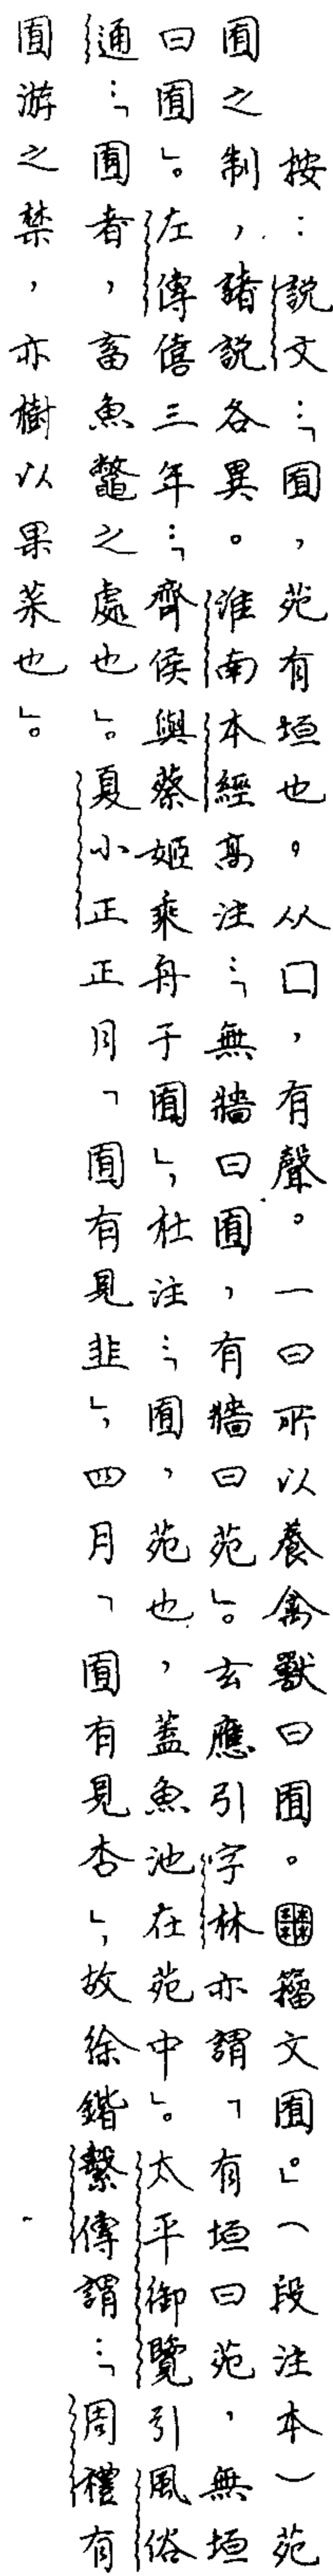 按：說文：「囿，苑有垣也，从囗，有聲。一曰所以養禽獸曰囿。𡈹籀文囿。」（段注本）苑
囿之制，諸說各異。淮南本經高注：「無牆曰囿，有牆曰苑」。玄應引字林亦謂「有垣曰苑，無垣
曰囿」。左傳僖三年：「齊侯與蔡姬乘舟于囿」，杜注：「囿，苑也，蓋魚池在苑中」。太平御覽引風俗
通：「囿者，畜魚鼈之處也」。夏小正正月「囿有見韭」，四月「囿有見杏」，故徐鍇繫傳謂：「周禮有
囿游之禁，亦樹以果菜也」。